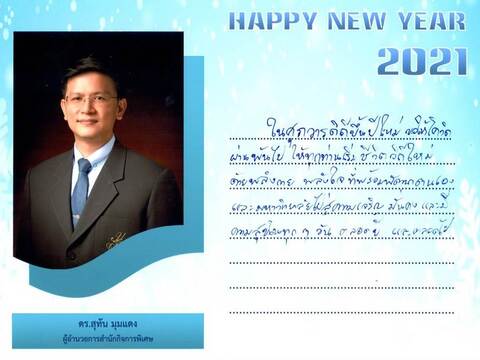 HAPPY NEW YEAR
2021
ในศุภวารดิถีขึ้นปีใหม่ ขอให้
ผ่านพ้นไป ให้ทุกท่านเริ่มชีวิตวิถีใหม่
ด้วยพลังกาย พลังใจ ที่พร้อมพัฒนาตนเอง
และมหาวิทยาลัยไปสู่ความเจริญ มั่นคง และมี
ความสุขในทุก ๆ วัน ตลอดปี และตลอดไป
ดร.สุทัน มุมแดง
ผู้อำนวยการสำนักกิจการพิเศษ